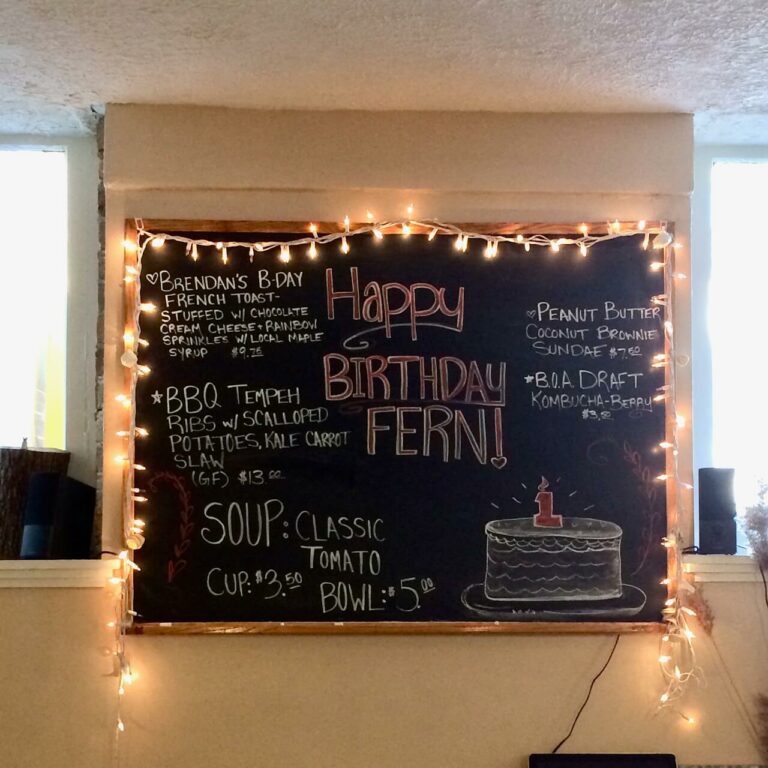 ♡Brendan's B-Day
French Toast-
Stuffed w/ Chocolate
Cream Cheese + Rainbow
Sprinkles w/ Local Maple
Syrup $9.75
★BBQ Tempeh
Ribs w/ Scalloped
Potatoes, Kale Carrot
Slaw
(GF) $13.00
Soup: Classic
Tomato
Cup: $3.50
Bowl: $5.00
Happy
Birthday
Fern!
♡Peanut Butter
Coconut Brownie
Sundae $7.50
★B.O.A. Draft
Kombucha-Berry
1